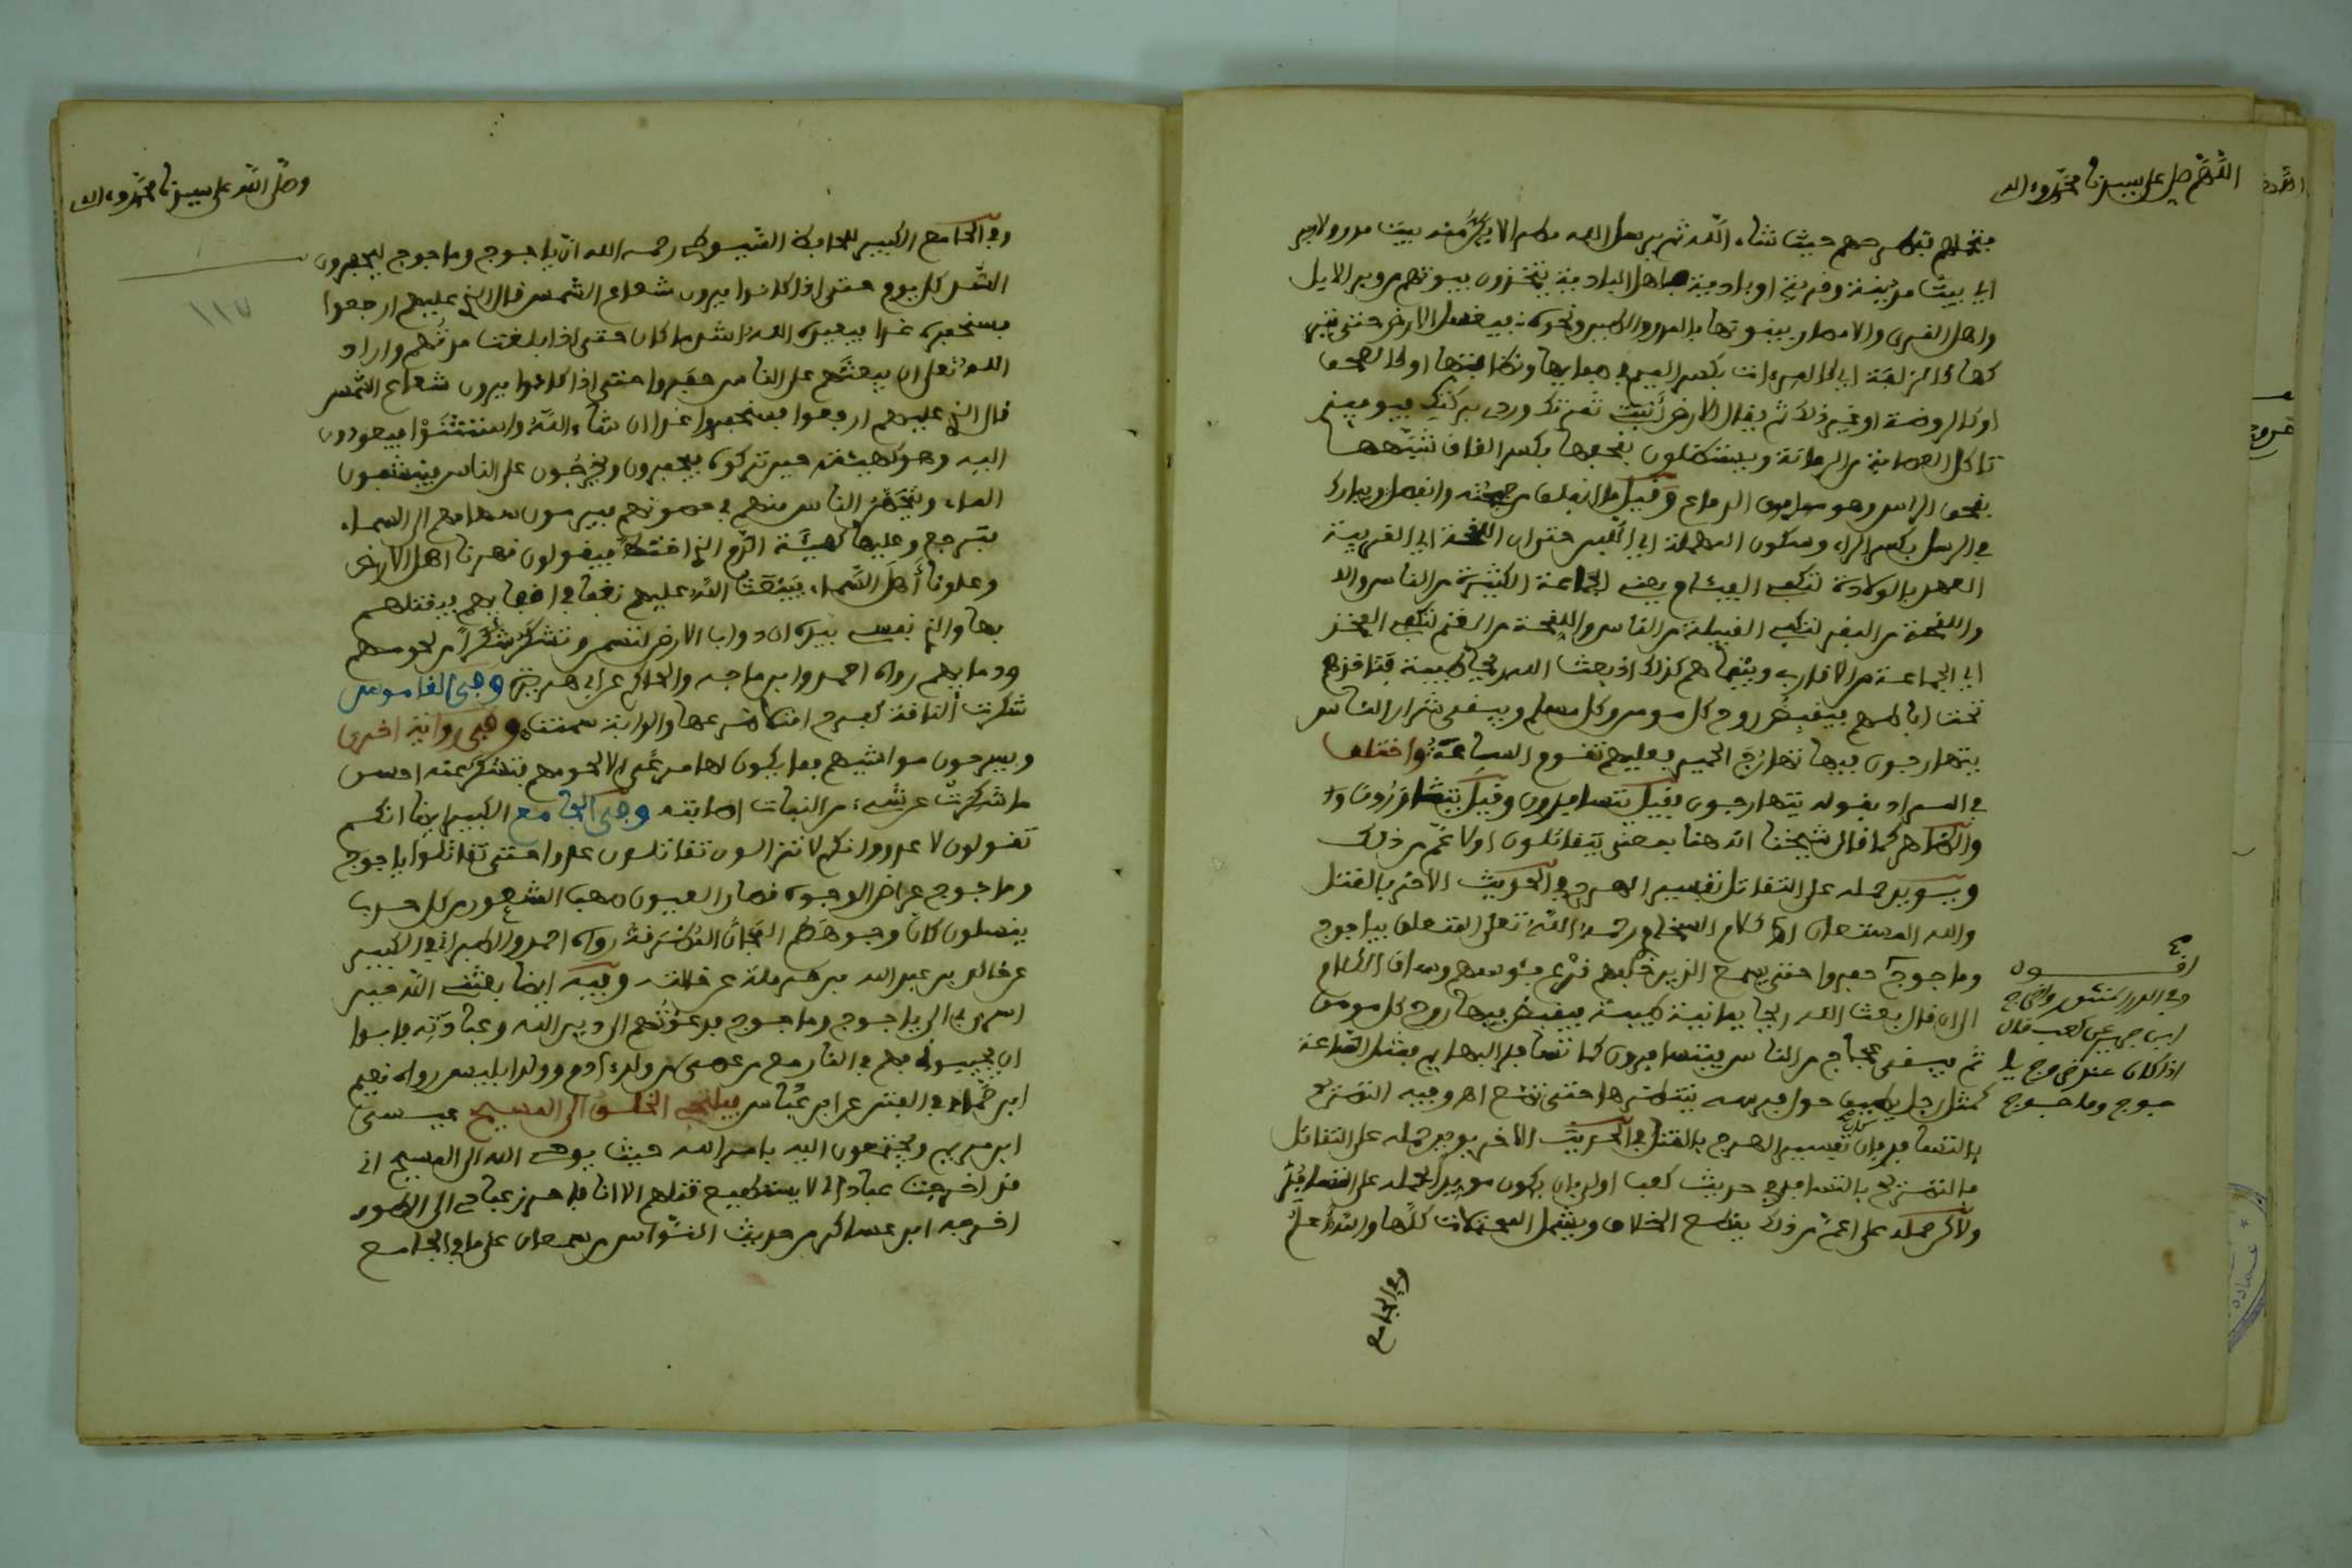 اللهم صل على سيدنا محمد وءاله
فتحملهم فتطرحهم حيث شاء الله ثم يرسل الله مطرا لا يكن منه بيت مدر ولا وبر
اي بيت مدينة وقرية او بادية فاهل البادية يتخذون بيوتهم من وبر الابل
واهل القرى والامصار يبنونها بالمدر والطين ونحوه فيغسل الارض حتى يتر
كها كالزلفة اي كالمرءات بكسر الميم في صفايها ونظافتها او كالصحفة
او كالروضة او غير ذلك ثم يقال للارض أنبتي ثمرتك وردي بركتك فيومئذ
تاكل العصابة من الرمانة ويستظلون بقحفها بكسر القاف شبهها
بقحف الراس وهو الدماغ وقيل ما انفلق من جمجمته وانفصل ويبارك
في الرسل بكسر الراء وسكون المهملة اي اللبن حتى ان اللقحة اي القريبة
العهد بالولادة لتكفي الفئام يعني الجماعة الكثيرة من الناس وال
واللقحة من البقر لتكفي القبيلة من الناس واللقحة من الغنم لتكفي الفخذ
اي الجماعة من الاقارب وبينما هم كذلك اذ بعث الله ريحا طيبة فتاخذهم
تحت اباطهم فيقبض روح كل مومن وكل مسلم ويبقى شرار الناس
يتهارجون فيها تهارج الحمير فعليهم تقوم الساعة واختلف
في المراد بقوله يتهارجون فقيل يتسافدون وقيل
والظاهر كما قال شيخنا انه هنا بمعنى يتقاتلون او لاعم من ذلك
ويويد حمله على التقاتل تفسير الهرج في الحديث الاخر بالقتل
والله المستعان كلام السخاوي رحمه الله تعلى المتعلق بياجوج
وماجوج حفروا حتى يسمع الذين خلفهم قرع فئوسهم وساق الكلام
الى ان قال بعث الله ريحا يمانية طيبة فيقبض فيها روح كل مومن
ثم يبقى عجاج من الناس يتسافدون كما تتسافد البهايم فمثل الساعة
كمثل رجل يطيف حول فرسه ينتظرها حتى تضع اه وفيه التصريح
بالتسافد فان تفسير الهرج بالقتل في الحديث الاخر يويد حمله على التقاتل
فالتصريح بالتسافد في حديث كعب اولى بان يكون مويدا لحمله على التسافد
ولاكن حمله على اعم من ذلك يقطع الخلاف ويشمل المحتملات كلها والله أعلم
وفي الجامع
وفي الدرر المنثور واخرج
ابن جرير عن كعب قال
اذا كان عند خروج يا
جوج وماجوج
وصلى الله على سيدنا محمد وءاله
١١٧
وفي الجامع الكبير للحافظ السيوطي رحمه الله ان ياجوج وماجوج ليحفرون
السد كل يوم حتى اذا كادوا يرون شعاع الشمس قال الذي عليهم ارجعوا
فسنحفره غدا فيعيده الله اشد ما كان حتى اذا بلغت مدتهم واراد
الله تعلى ان يبعثهم على الناس حفروا حتى اذا كادوا يرون شعاع الشمس
قال الذي عليهم ارجعوا فسنحفره غدا ان شاء الله واستثنوا فيعودون
اليه وهو كهيئته حين تركوه فيحفرون ويخرجون على الناس فينشفون
الماء ويتحصن الناس منهم في حصونهم فيرمون سهامهم الى السماء
فترجع وعليها كهيئة الدم الذي اختضب فيقولون قهرنا اهل الارض
وعلونا أهل السماء فيبعث الله عليهم نغفا في اقفايهم فيقتلهم
بها والذي نفسي بيده ان دواب الارض لتسمن وتشكر شكرا من لحومهم
ودمايهم رواه احمد وابن ماجه والحاكم عن ابي هريرة وفي القاموس
شكرت الناقة كفرح امتلا ضرعها والدابة سمنت وفي رواية اخرى
ويسرحون مواشيهم فما يكون لها مرعى الا لحومهم فتشكر عنه احسن
ما شكرت عن شيء من النبات اصابته وفي الجامع الكبير ايضا انكم
تقولون لا عدو وانكم لا تزالون تقاتلون عدوا حتى تقاتلوا ياجوج
وماجوج عراض الوجوه صغار العيون صهب الشعور من كل حدب
ينسلون كان وجوههم المجان المطرقة رواه احمد والطبراني في الكبير
عن خالد بن عبد الله بن حرملة عن خالته وفيه ايضا بعثني الله حين
اسري بي الى ياجوج وماجوج فدعوتهم الى دين الله وعبادته فابوا
ان يجيبوني فهم في النار مع من عصى من ولد ءادم وولد ابليس رواه نعيم
ابن حماد في الفتن عن ابن عباس فيلتجي الخلق الى المسيح عيسى
ابن مريم ويجتمعون اليه بامر الله حيث يوحي الله الى المسيح اني
قد اخرجت عبادا لي لا يستطيع قتلهم الا انا فاحرز عبادي الى الطور
اخرجه ابن عساكر من حديث النواس بن سمعان على ما في الجامع